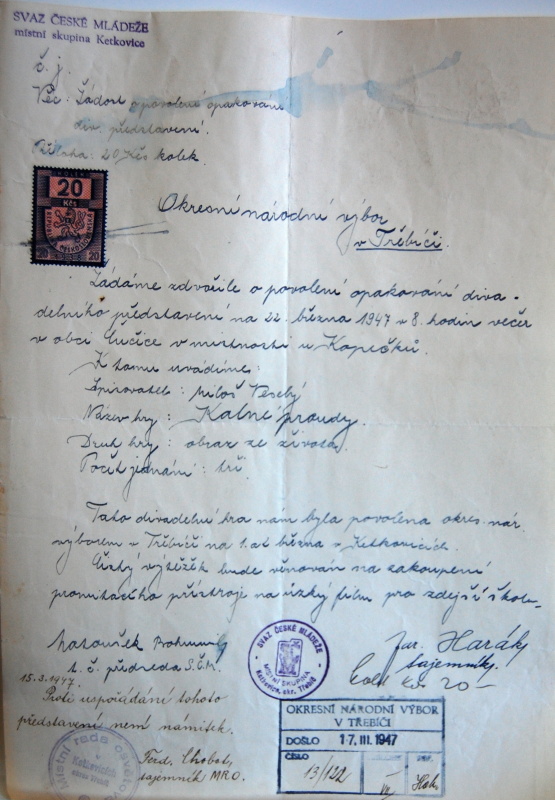 SVAZ ČESKÉ MLÁDEŽE
místní skupina Ketkovice
č. j.
Věc: Žádost o povolení opakování
div. představení.
Příloha: 20 Kčs kolek.
KOLEK
20
Kčs
REPUBLIKA ČESKOSLOVENSKÁ
20 20
Okresní národní výbor
v Třebíči.
Žádáme zdvořile o povolení opakování diva-
delního představení na 22. března 1947 v 8. hodin večer
v obci Čučice v místnosti u Kopečků.
K tomu uvádíme:
Spisovatel: Miloš Veselý
Název hry: Kalné proudy.
Druh hry: obraz ze života.
Počet jednání: tři.
Tato divadelní hra nám byla povolena okres. nár.
výborem v Třebíči na 1. března v Ketkovicích.
Čistý výtěžek bude věnován na zakoupení
promítacího přístroje na úzký film pro zdejší školu.
Matoušek Bohumil
t. č. předseda S.Č.M.
SVAZ ČESKÉ MLÁDEŽE
MÍSTNÍ SKUPINA
Ketkovice, okr. Třebíč
Jar. Harák
tajemník.
Kolek Kčs 20–
15.3.1947.
Proti uspořádání tohoto
představení není námitek.
Místní rada osvětová
Ketkovicích
okres Třebíč
Ferd. Chobot,
tajemník MRO.
OKRESNÍ NÁRODNÍ VÝBOR
V TŘEBÍČI
DOŠLO 17. III. 1947
ČÍSLO
13/122